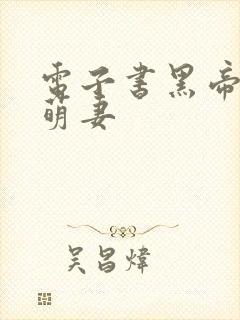 電子书黑帝
萌妻
吴昌煒